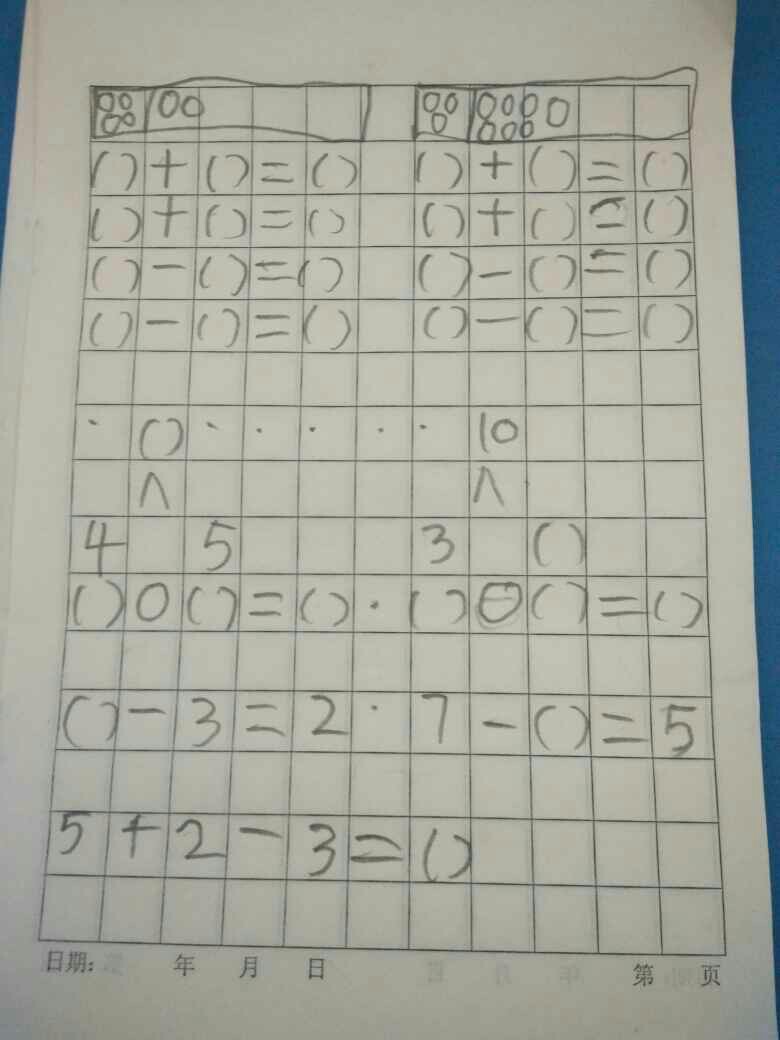 ()+()=() ()+()=()
()+()=() ()+()=()
()-()=() ()-()=()
()-()=() ()-()=()
· () · · · · · 10
∧ ∧
4 5 3 ()
()○()=()·()⊖()=()
()-3=2·7-()=5
5+2-3=()
日期: 年 月 日 第 页